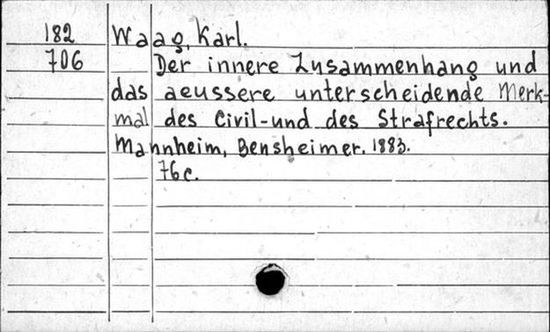 182 Waag, Karl.
706 Der innere Zusammenhang und
das aeussere unterscheidende Merk-
mal des Civil-und des Strafrechts.
Mannheim, Bensheimer. 1883.
76c.